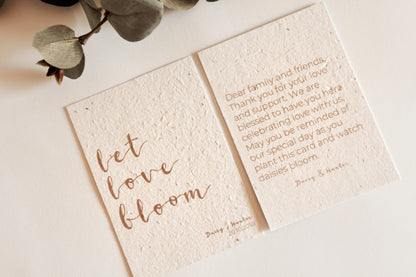 let
love
bloom
Daisy & Hunter
Dear family and friends,
Thank you for your love
and support. We are
blessed to have you here
celebrating love with us.
May you be reminded of
our special day as you
plant this card and watch
daisies bloom.
Daisy & Hunter